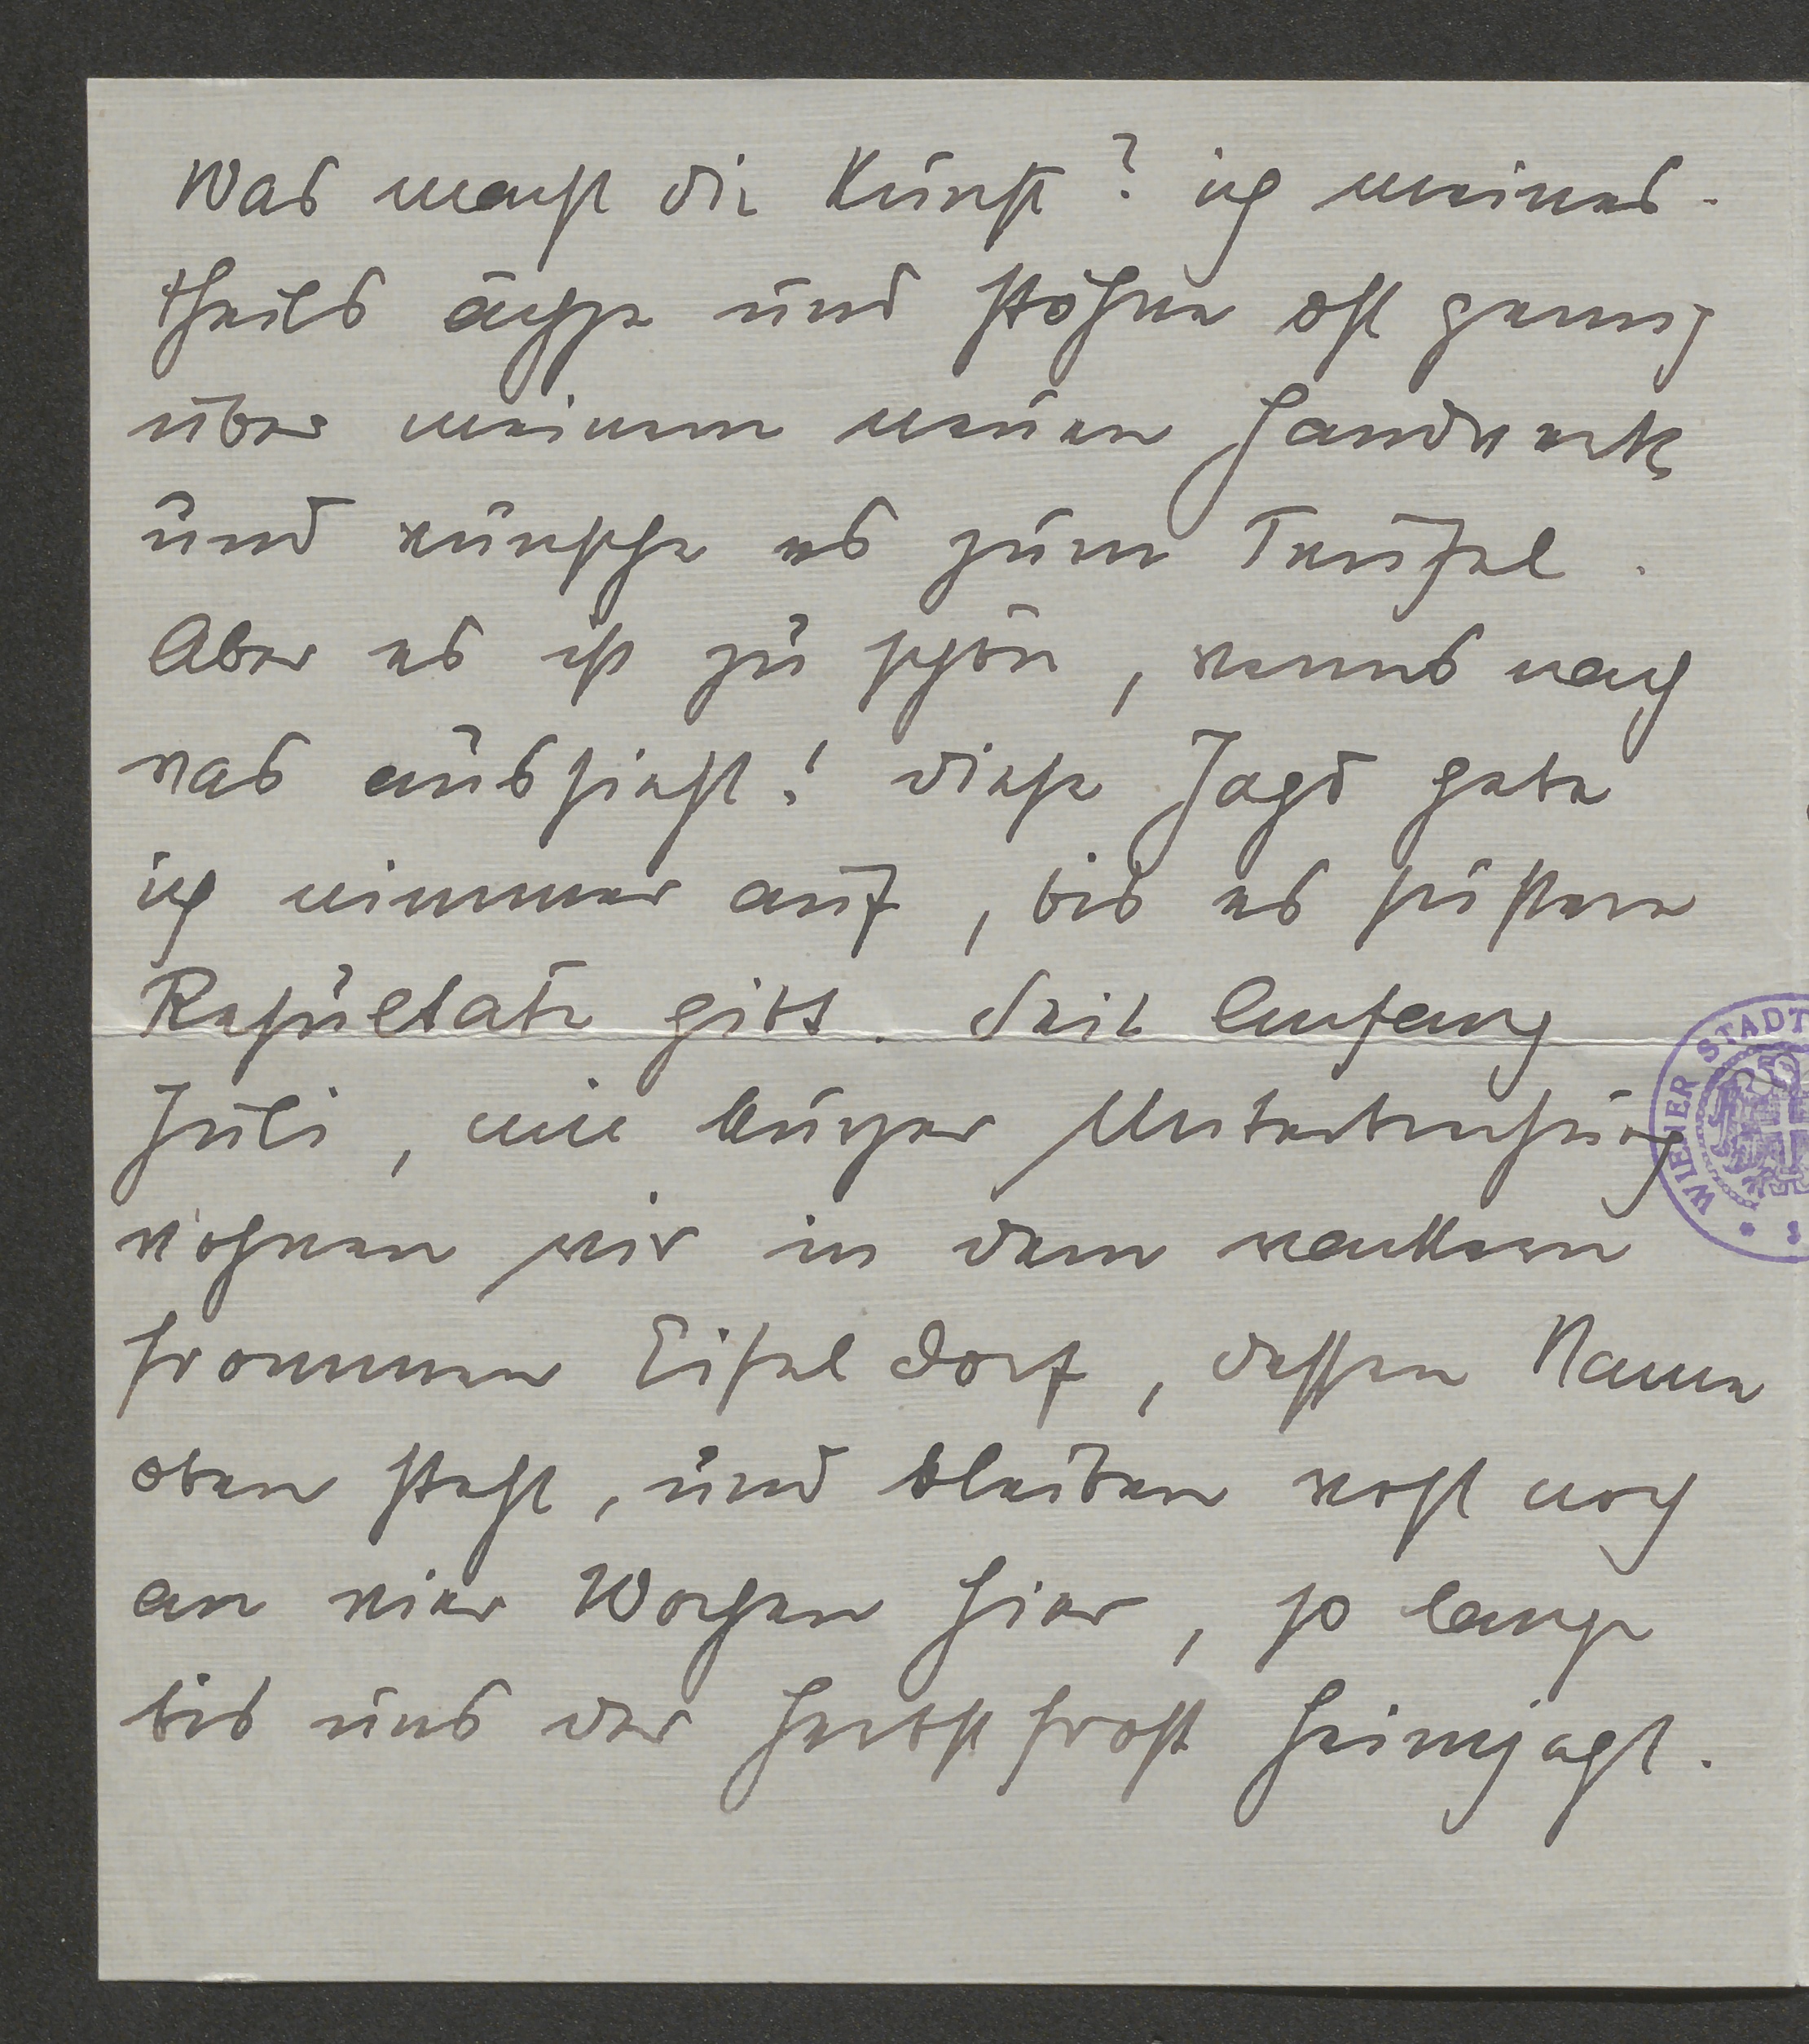 Was macht die Kunst? ich meines-
theils ächze und stöhne oft genug
über meinem neuen Handwerk
und wünsche es zum Teufel.
Aber es ist zu schön, wenns nach
was aussieht! diese Jagd gebe
ich nimmer auf, bis es sichere
Resultate gibt. Seit Anfang
Juli, mit kurzer Unterbrechung
wohnen wir in dem wackern
frommen Eifeldorf, dessen Name
oben steht, und bleiben wohl noch
an vier Wochen hier, so lange
bis uns der Herbstfrost heimjagt.
WIENER STADT